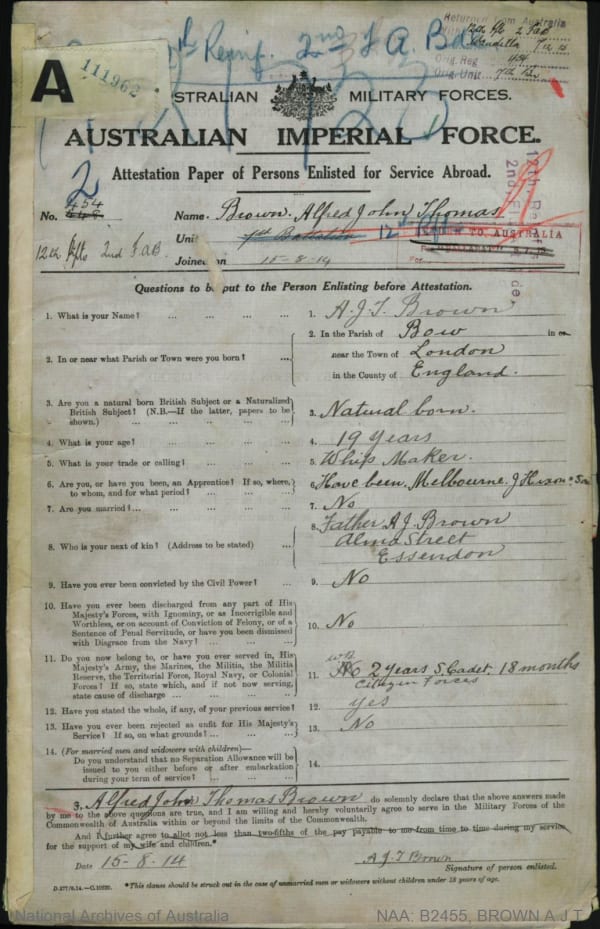 Reinf. 2nd F. A. B
Returned from Australia
12th Rfts 2 FAB
7 12 15
Orig. Reg 454
Orig. Unit 7th Bn
A
111962
STRALIAN MILITARY FORCES.
AUSTRALIAN IMPERIAL FORCE.
Attestation Paper of Persons Enlisted for Service Abroad.
2
454
No. 448 Name Brown. Alfred John Thomas
Unit 7th Battalion 12th Rfts
TO AUSTRALIA
12th Rfts 2nd FAB
Joined on 15-8-14
Questions to be put to the Person Enlisting before Attestation.
1. What is your Name? ... ... ... ... 1. A. J. T. Brown
2. In or near what Parish or Town were you born? ... 2. In the Parish of Bow in or
near the Town of London
in the County of England.
3. Are you a natural born British Subject or a Naturalized
British Subject? (N.B.—If the latter, papers to be
shown.) ... ... ... ... 3. Natural born.
4. What is your age? ... ... ... ... 4. 19 years
5. What is your trade or calling? ... ... ... 5. Whip Maker.
6. Are you, or have you been, an Apprentice? If so, where,
to whom, and for what period? ... ... ... 6. Have been. Melbourne. J Hixon & Son
7. Are you married? ... ... ... ... 7. No
8. Who is your next of kin? (Address to be stated) ... 8. Father A. J. Brown
Alma Street
Essendon
9. Have you ever been convicted by the Civil Power? ... 9. No
10. Have you ever been discharged from any part of His
Majesty's Forces, with Ignominy, or as Incorrigible and
Worthless, or on account of Conviction of Felony, or of a
Sentence of Penal Servitude, or have you been dismissed
with Disgrace from the Navy? ... ... ... 10. No
11. Do you now belong to, or have you ever served in, His
Majesty's Army, the Marines, the Militia, the Militia
Reserve, the Territorial Force, Royal Navy, or Colonial
Forces? If so, state which, and if not now serving,
state cause of discharge ... ... ... 11. No 2 years S. Cadet. 18 months
Citizen Forces
12. Have you stated the whole, if any, of your previous service? 12. yes
13. Have you ever been rejected as unfit for His Majesty's
Service? If so, on what grounds? ... ... 13. No
14. (For married men and widowers with children)—
Do you understand that no Separation Allowance will be
issued to you either before or after embarkation
during your term of service? ... ... ... 14.
I, Alfred John Thomas Brown do solemnly declare that the above answers made
by me to the above questions are true, and I am willing and hereby voluntarily agree to serve in the Military Forces of the
Commonwealth of Australia within or beyond the limits of the Commonwealth.
And I further agree to allot not less than two-fifths of the pay payable to me from time to time during my service
for the support of my wife and children.*
Date 15-8-14 A. J. T Brown
Signature of person enlisted.
*This clause should be struck out in the case of unmarried men or widowers without children under 18 years of age.
National Archives of Australia NAA: B2455, BROWN A J T